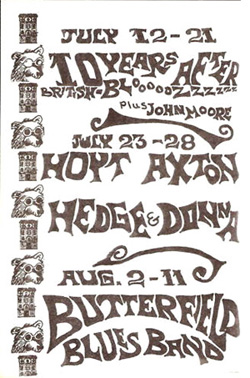 JULY 12-21
10 YEARS AFTER
BRITISH-BLOOOOOZZZZZZ
Plus JOHN MOORE
JULY 23-28
HOYT AXTON
HEDGE & DONNA
AUG. 2-11
BUTTERFIELD
BLUES BAND